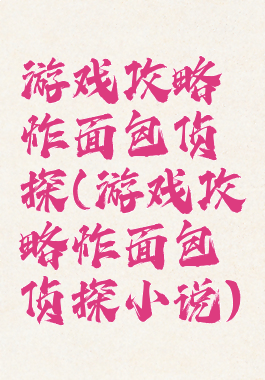 游戏攻略
炸面包侦
探(游戏攻
略炸面包
侦探小说)